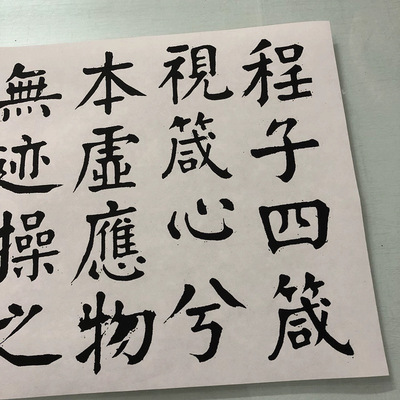 程子四箴
視箴心兮
本虛應物
無迹操之